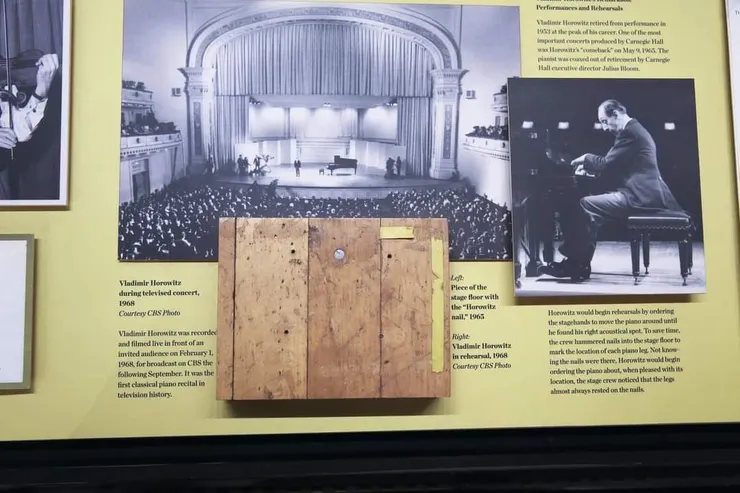 Performances and Rehearsals
Vladimir Horowitz retired from performance in
1953 at the peak of his career. One of the most
important concerts produced by Carnegie Hall
was Horowitz's "comeback" on May 9, 1965. The
pianist was coaxed out of retirement by Carnegie
Hall executive director Julius Bloom.
Vladimir Horowitz
during televised concert,
1968
Courtesy CBS Photo
Vladimir Horowitz was recorded
and filmed live in front of an
invited audience on February 1,
1968, for broadcast on CBS the
following September. It was the
first classical piano recital in
television history.
Left:
Piece of the
stage floor with
the "Horowitz
nail," 1965
Right:
Vladimir Horowitz
in rehearsal, 1968
Courtesy CBS Photo
Horowitz would begin rehearsals by ordering
the stagehands to move the piano around until
he found his right acoustical spot. To save time,
the crew hammered nails into the stage floor to
mark the location of each piano leg. Not know-
ing the nails were there, Horowitz would begin
ordering the piano about, when pleased with its
location, the stage crew noticed that the legs
almost always rested on the nails.